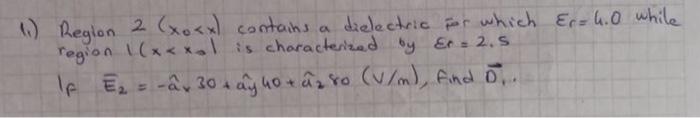 1.) Region 2 (x₀<x) contains a dielectric for which εr=4.0 while
region 1 (x<x₀) is characterized by εr = 2.5
If E̅₂ = -âₓ30 + ây40 + â₂80 (V/m), find D⃗₁.